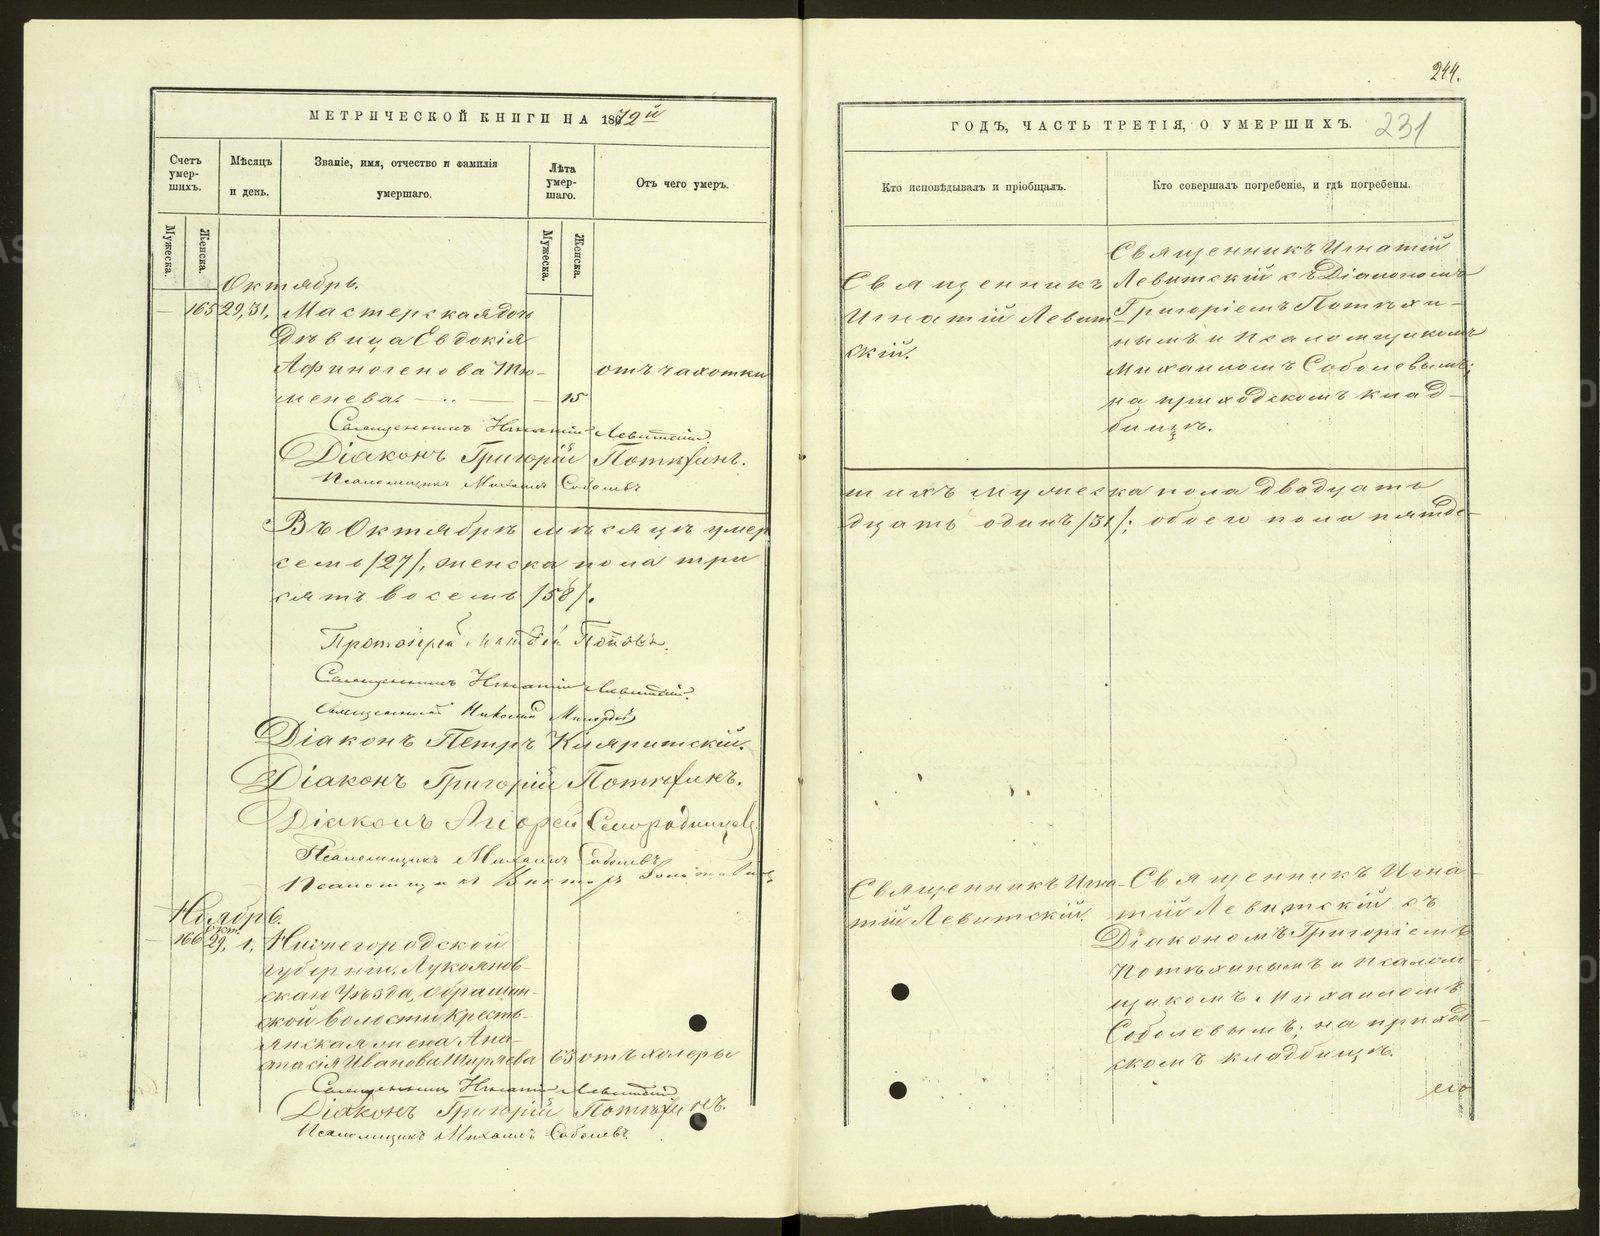 244.
231
МЕТРИЧЕСКОЙ КНИГИ НА 1872й
ГОДЪ, ЧАСТЬ ТРЕТІЯ, О УМЕРШИХЪ.
Счетъ умершихъ.
Мѣсяцъ и день.
Званіе, имя, отчество и фамилія умершаго.
Лѣта умершаго.
Отъ чего умеръ.
Кто исповѣдывалъ и пріобщалъ.
Кто совершалъ погребеніе, и гдѣ погребены.
Мужеска.
Женска.
Мужеска.
Женска.
Октябрь.
— 165 29, 31, Мастерская дочь
Дѣвица Евдокія
Афиногенова Тю-
менева. — 15
отъ чахотки
Священникъ Игнатій Левитскій.
Діаконъ Григорій Потѣхинъ.
Псаломщикъ Михаилъ Соболевъ
Священникъ
Игнатій Левит-
скій.
Священникъ Игнатій
Левитскій съ Діакономъ
Григоріемъ Потѣхи-
нымъ и Псаломщикомъ
Михаиломъ Соболевымъ;
на приходскомъ клад-
бищѣ.
Въ Октябрѣ мѣсяцѣ умер
шихъ мужеска пола двадцать
семь /27/, женска пола три
дцать одинъ /31/; обоего пола пятьде-
сятъ восемь /58/.
Протоіерей Поповъ.
Священникъ Игнатій Левитскій.
Священникъ Николай
Діаконъ Петръ
Діаконъ Григорій Потѣхинъ.
Діаконъ Андрей Смородинцевъ.
Псаломщикъ Михаилъ Соболевъ
Псаломщикъ Викторъ
Ноябрь.
Окт.
— 166 29, 1, Нижегородской
губерніи, Лукоянов-
скаго Уѣзда,
ской волости Кресть-
янская жена Ана-
стасія Иванова Ширяева 63 отъ холеры
Священникъ Игнатій Левитскій
Діаконъ Григорій Потѣхинъ.
Псаломщикъ Михаилъ Соболевъ.
Священникъ Игна-
тій Левитскій.
Священникъ Игна-
тій Левитскій съ
Діакономъ Григоріемъ
Потѣхинымъ и псалом-
щикомъ Михаиломъ
Соболевымъ; на приход-
скомъ кладбищѣ.
его